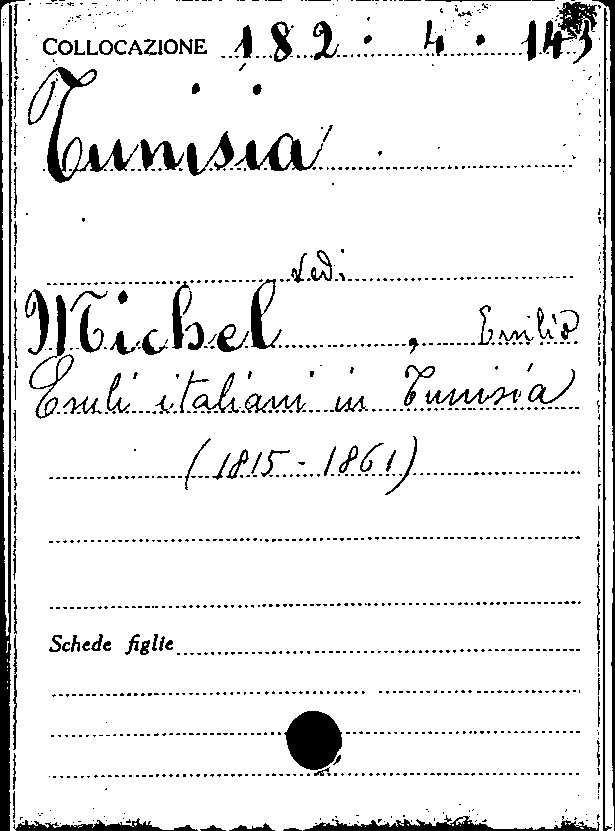 COLLOCAZIONE 182 . 4 . 143
Tunisia
vedi
Michel , Emilio
Esuli italiani in Tunisia
(1815 - 1861)
Schede figlie